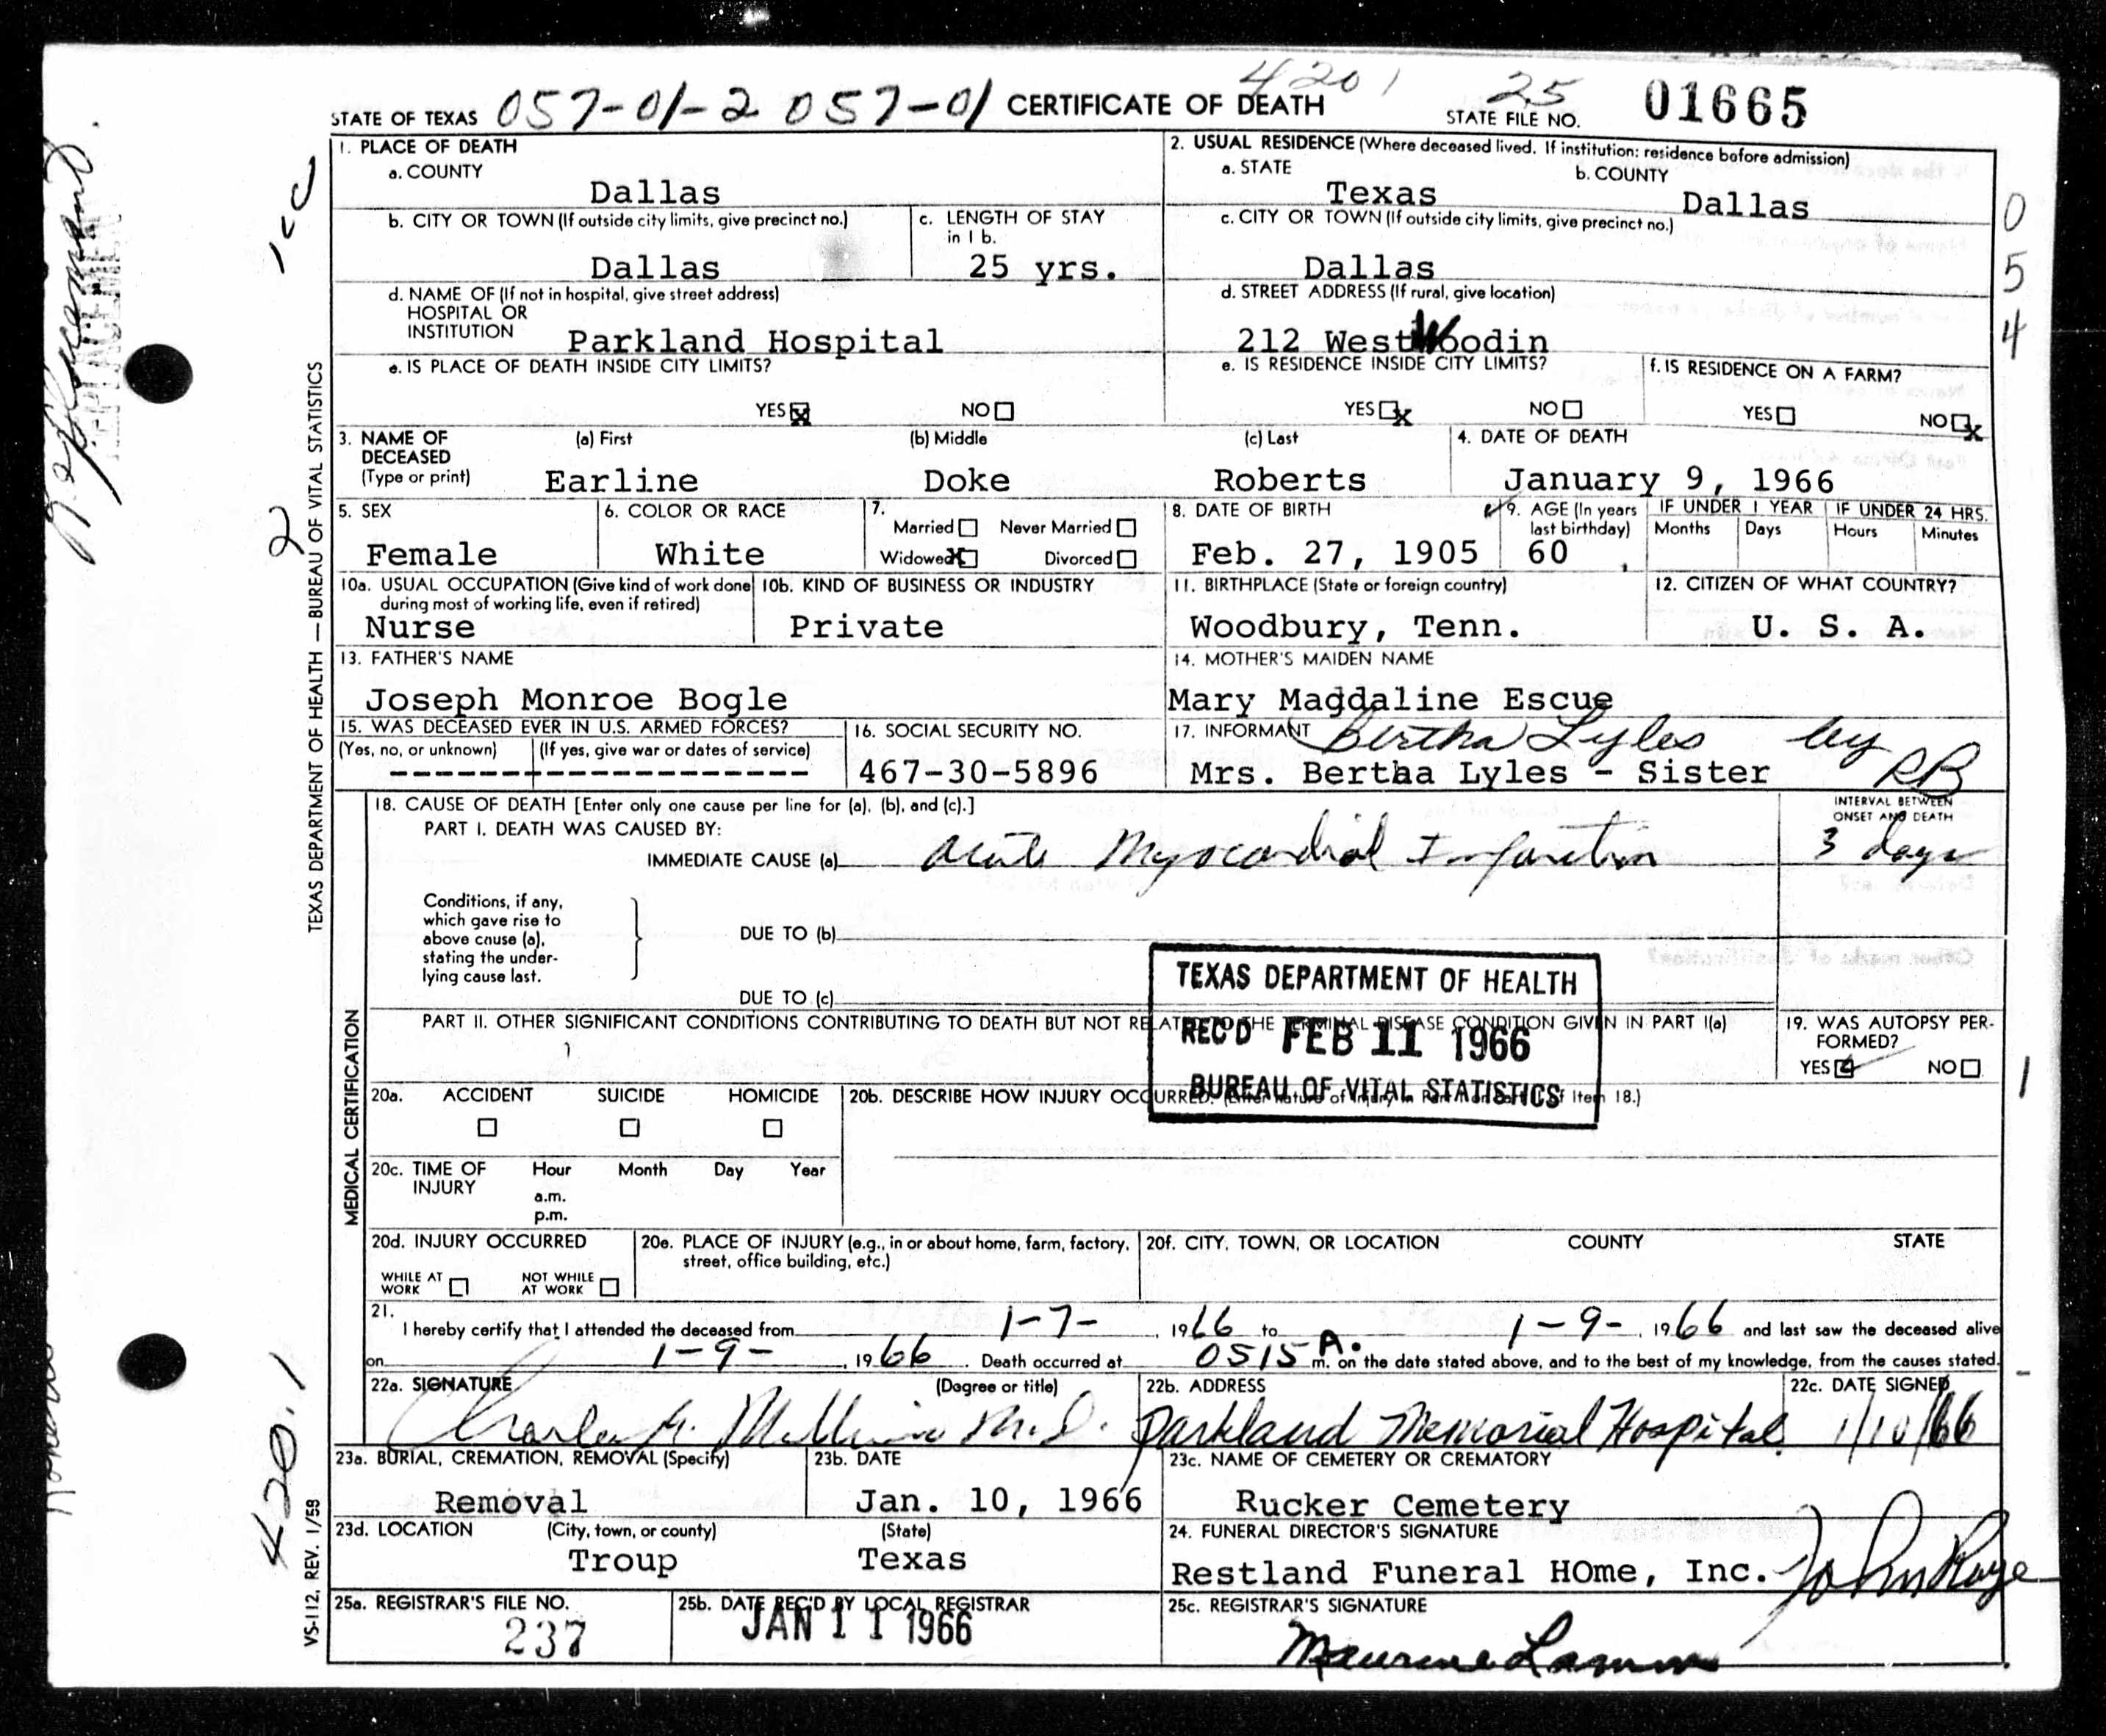 4201
STATE OF TEXAS 057-01-2 057-01 CERTIFICATE OF DEATH 25 STATE FILE NO. 01665
1. PLACE OF DEATH
a. COUNTY
Dallas
2. USUAL RESIDENCE (Where deceased lived. If institution: residence before admission)
a. STATE b. COUNTY
Texas Dallas
b. CITY OR TOWN (If outside city limits, give precinct no.)
Dallas
c. LENGTH OF STAY
in 1 b.
25 yrs.
c. CITY OR TOWN (If outside city limits, give precinct no.)
Dallas
d. NAME OF (If not in hospital, give street address)
HOSPITAL OR
INSTITUTION Parkland Hospital
d. STREET ADDRESS (If rural, give location)
212 West Woodin
e. IS PLACE OF DEATH INSIDE CITY LIMITS?
YES x NO
e. IS RESIDENCE INSIDE CITY LIMITS?
YES x NO
f. IS RESIDENCE ON A FARM?
YES NO x
0
5
4
3. NAME OF
DECEASED
(Type or print)
(a) First (b) Middle (c) Last
Earline Doke Roberts
4. DATE OF DEATH
January 9, 1966
5. SEX
Female
6. COLOR OR RACE
White
7.
Married Never Married
Widowed x Divorced
8. DATE OF BIRTH
Feb. 27, 1905
9. AGE (In years
last birthday)
60
IF UNDER 1 YEAR IF UNDER 24 HRS.
Months Days Hours Minutes
10a. USUAL OCCUPATION (Give kind of work done
during most of working life, even if retired)
Nurse
10b. KIND OF BUSINESS OR INDUSTRY
Private
11. BIRTHPLACE (State or foreign country)
Woodbury, Tenn.
12. CITIZEN OF WHAT COUNTRY?
U. S. A.
13. FATHER'S NAME
Joseph Monroe Bogle
14. MOTHER'S MAIDEN NAME
Mary Magdaline Escue
15. WAS DECEASED EVER IN U.S. ARMED FORCES?
(Yes, no, or unknown) (If yes, give war or dates of service)
16. SOCIAL SECURITY NO.
467-30-5896
17. INFORMANT Bertha Lyles by RB
Mrs. Bertha Lyles - Sister
18. CAUSE OF DEATH [Enter only one cause per line for (a), (b), and (c).]
PART I. DEATH WAS CAUSED BY:
IMMEDIATE CAUSE (a) acute Myocardial Infarction
INTERVAL BETWEEN
ONSET AND DEATH
3 days
Conditions, if any,
which gave rise to
above cause (a),
stating the under-
lying cause last.
DUE TO (b)
DUE TO (c)
PART II. OTHER SIGNIFICANT CONDITIONS CONTRIBUTING TO DEATH BUT NOT RELATED TO THE TERMINAL DISEASE CONDITION GIVEN IN PART I(a)
TEXAS DEPARTMENT OF HEALTH
REC'D FEB 11 1966
BUREAU OF VITAL STATISTICS
19. WAS AUTOPSY PER-
FORMED?
YES NO
1
20a. ACCIDENT SUICIDE HOMICIDE
20b. DESCRIBE HOW INJURY OCCURRED. (Enter nature of injury in Part I or Part II of Item 18.)
20c. TIME OF
INJURY
Hour Month Day Year
a.m.
p.m.
20d. INJURY OCCURRED
WHILE AT
WORK
NOT WHILE
AT WORK
20e. PLACE OF INJURY (e.g., in or about home, farm, factory,
street, office building, etc.)
20f. CITY, TOWN, OR LOCATION COUNTY STATE
21.
I hereby certify that I attended the deceased from 1-7-, 1966 to 1-9-, 1966 and last saw the deceased alive
on 1-9-, 1966. Death occurred at 0515 A. m. on the date stated above, and to the best of my knowledge, from the causes stated.
22a. SIGNATURE (Degree or title)
Charles M.D.
22b. ADDRESS
Parkland Memorial Hospital
22c. DATE SIGNED
1/10/66
23a. BURIAL, CREMATION, REMOVAL (Specify)
Removal
23b. DATE
Jan. 10, 1966
23c. NAME OF CEMETERY OR CREMATORY
Rucker Cemetery
23d. LOCATION (City, town, or county) (State)
Troup Texas
24. FUNERAL DIRECTOR'S SIGNATURE
Restland Funeral HOme, Inc. John
25a. REGISTRAR'S FILE NO.
237
25b. DATE REC'D BY LOCAL REGISTRAR
JAN 11 1966
25c. REGISTRAR'S SIGNATURE
Maurine
TEXAS DEPARTMENT OF HEALTH — BUREAU OF VITAL STATISTICS
MEDICAL CERTIFICATION
VS-112, REV. 1/58
1cc
2
420.1
REPLACEMENT